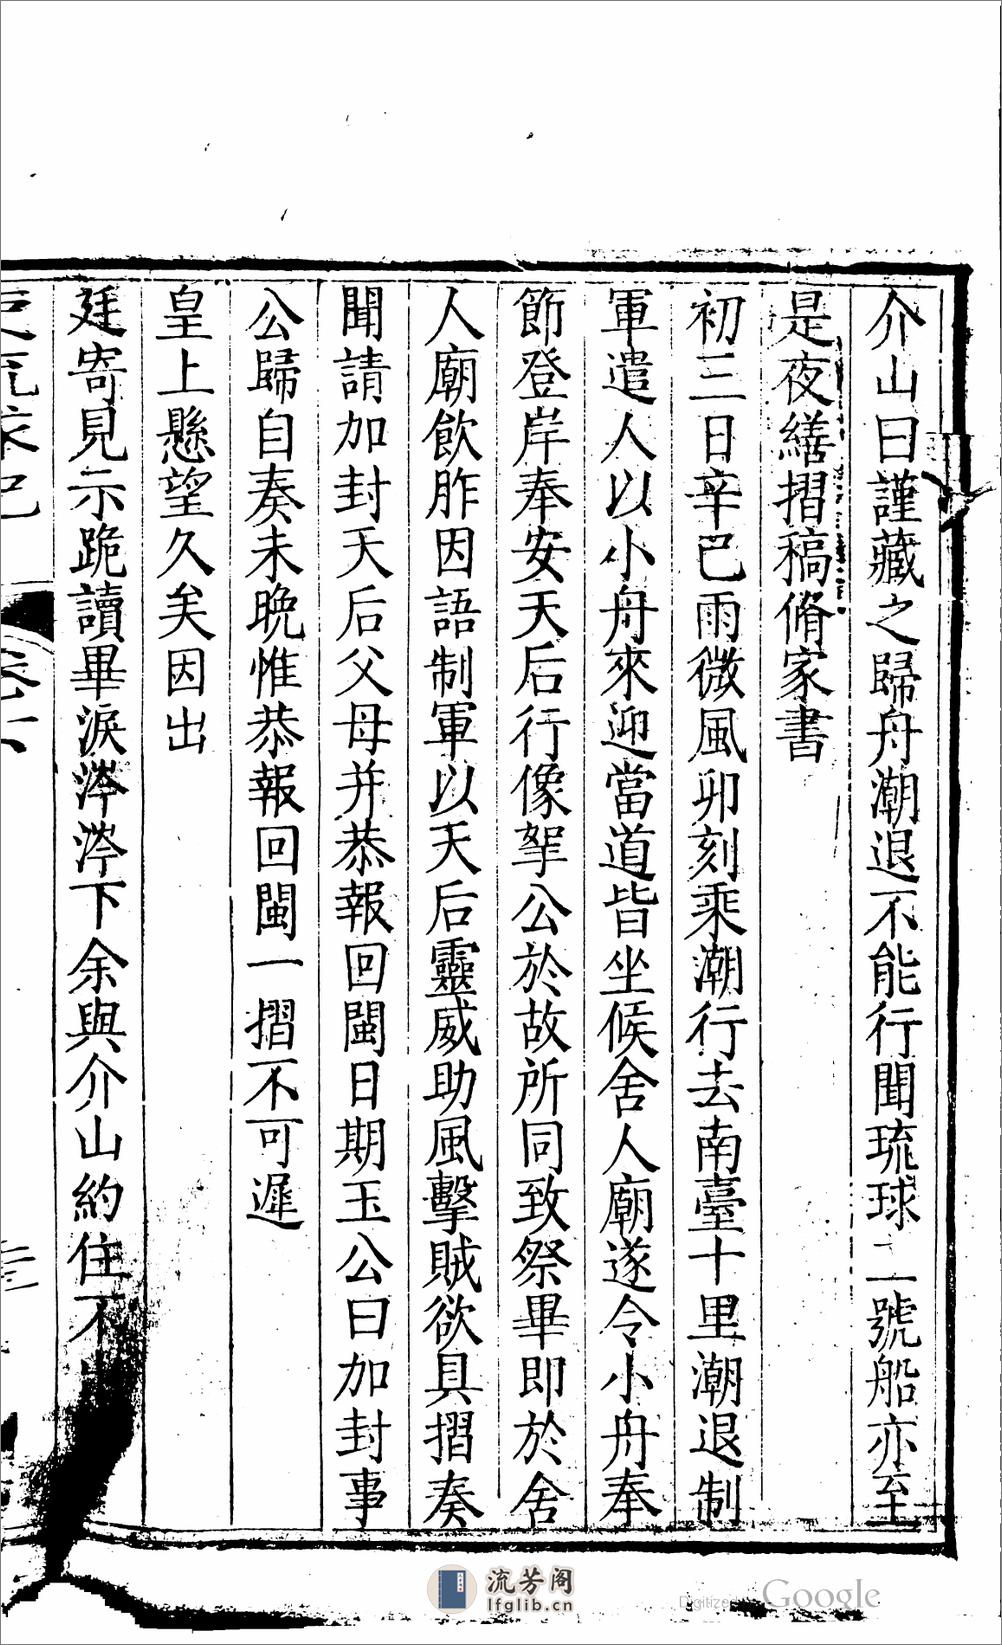 介山曰謹藏之歸舟潮退不能行聞琉球二號船亦至
是夜繕摺稿脩家書
初三日辛巳雨微風卯刻乘潮行去南臺十里潮退制
軍遣人以小舟來迎當道皆坐候舍人廟遂令小舟奉
節登岸奉安天后行像拏公於故所同致祭畢即於舍
人廟飲胙因語制軍以天后靈威助風擊賊欲具摺奏
聞請加封天后父母并恭報回閩日期玉公曰加封事
公歸自奏未晚惟恭報回閩一摺不可遲
皇上懸望久矣因出
廷寄見示跪讀畢淚涔涔下余與介山約住不
流芳阁
lfglib.cn
Digitized
Google